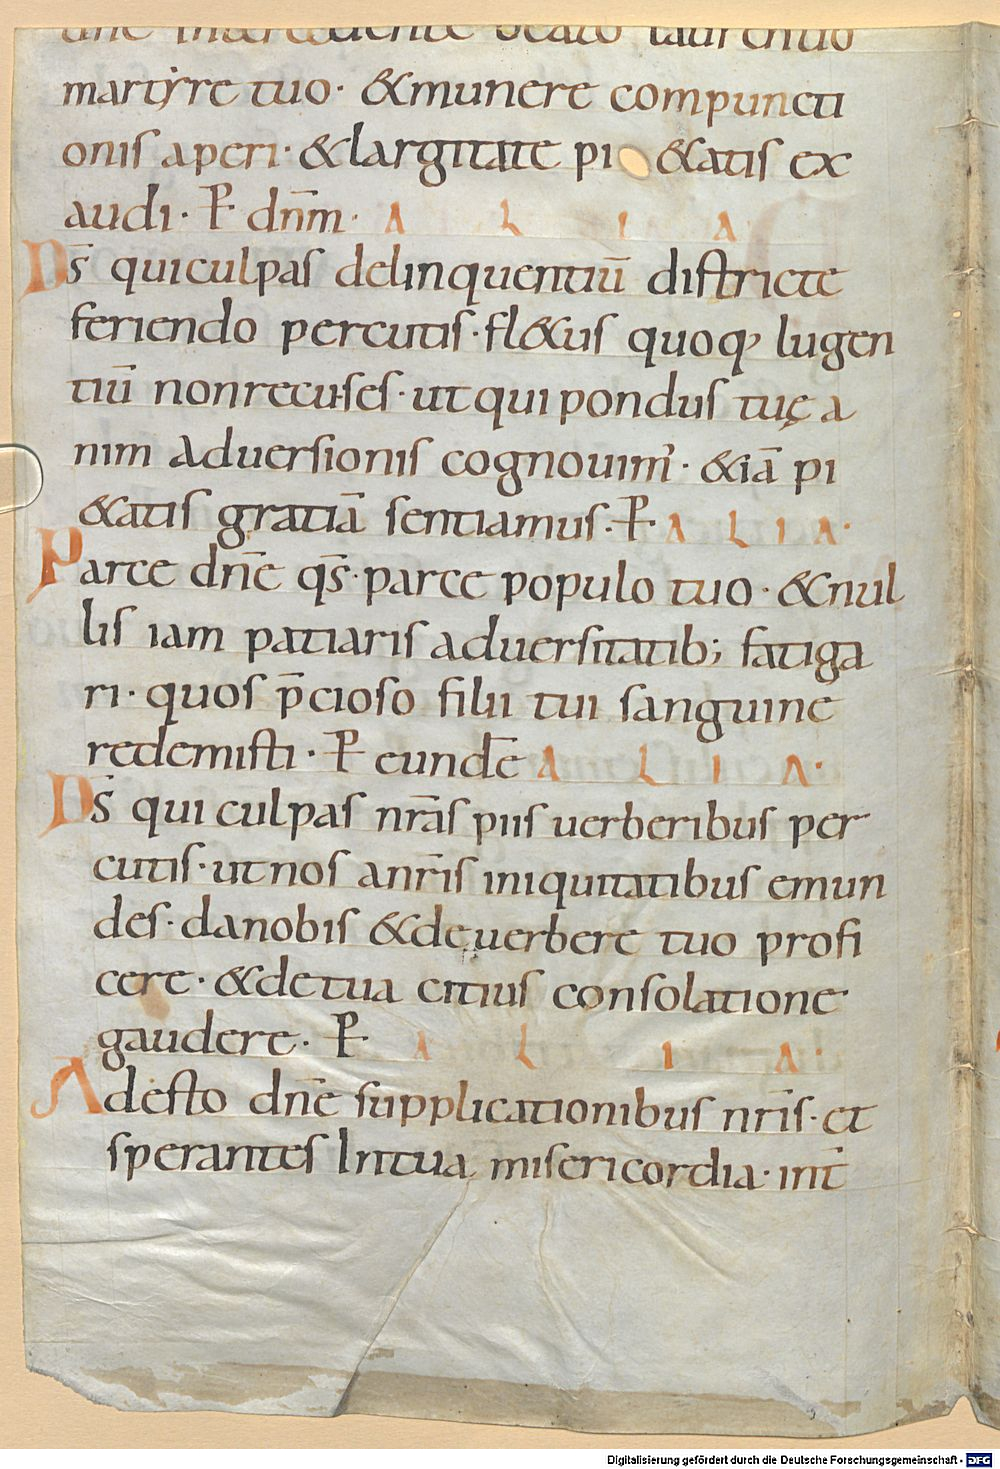 dne intercedente beato laurentio
martyre tuo· &munere compuncti
onis aperi· &largitate pi &atis ex
audi· P̄ dn̄m· A L I A
Ds̄ quiculpas delinquentiū districte
feriendo percutis· fl&us quoq; lugen
tiū nonrecuses· ut qui pondus tuę a
nim aduersionis cognouim᾽· &iā pi
&atis gratiā sentiamus· P̄ A L I A·
Parce dn̄e qs̄· parce populo tuo· &nul
lis iam patiaris aduersitatib; fatiga
ri· quos p̄cioso filii tui sanguine
redemisti· P̄ eundē A L I A·
Ds̄ qui culpas nr̄as piis uerberibus per
cutis· ut nos anr̄is iniquitatibus emun
des· danobis &deuerbere tuo profi
cere· &detua citius consolatione
gaudere· P̄ A L I A·
Adesto dn̄e supplicationibus nr̄is· et
sperantes Intua misericordia· int̄
Digitalisierung gefördert durch die Deutsche Forschungsgemeinschaft - DFG